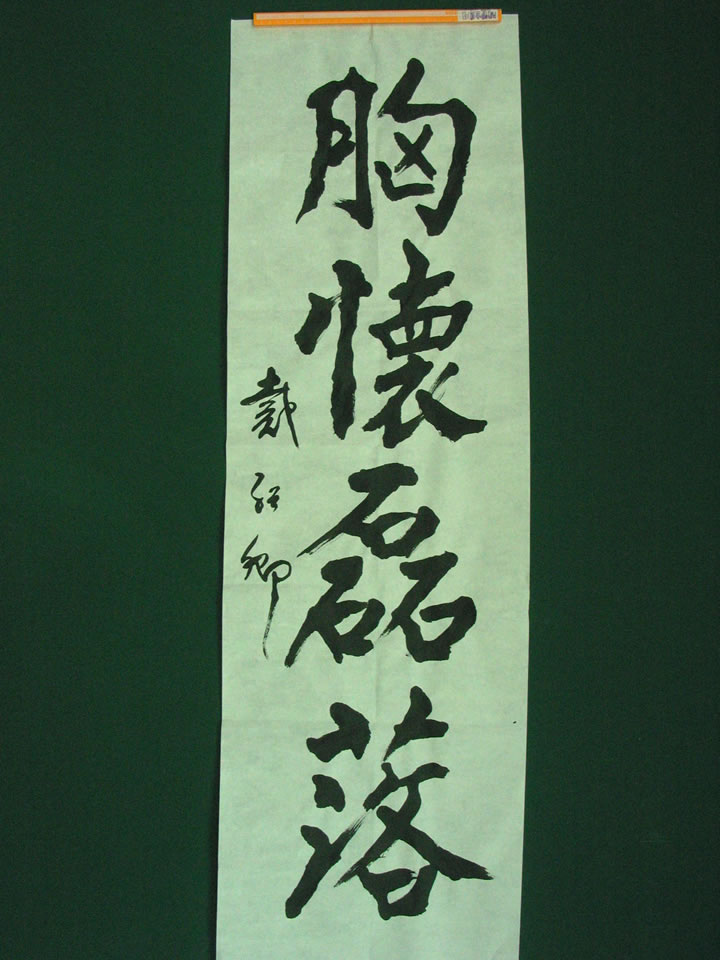 胸懷磊落
戴 卿